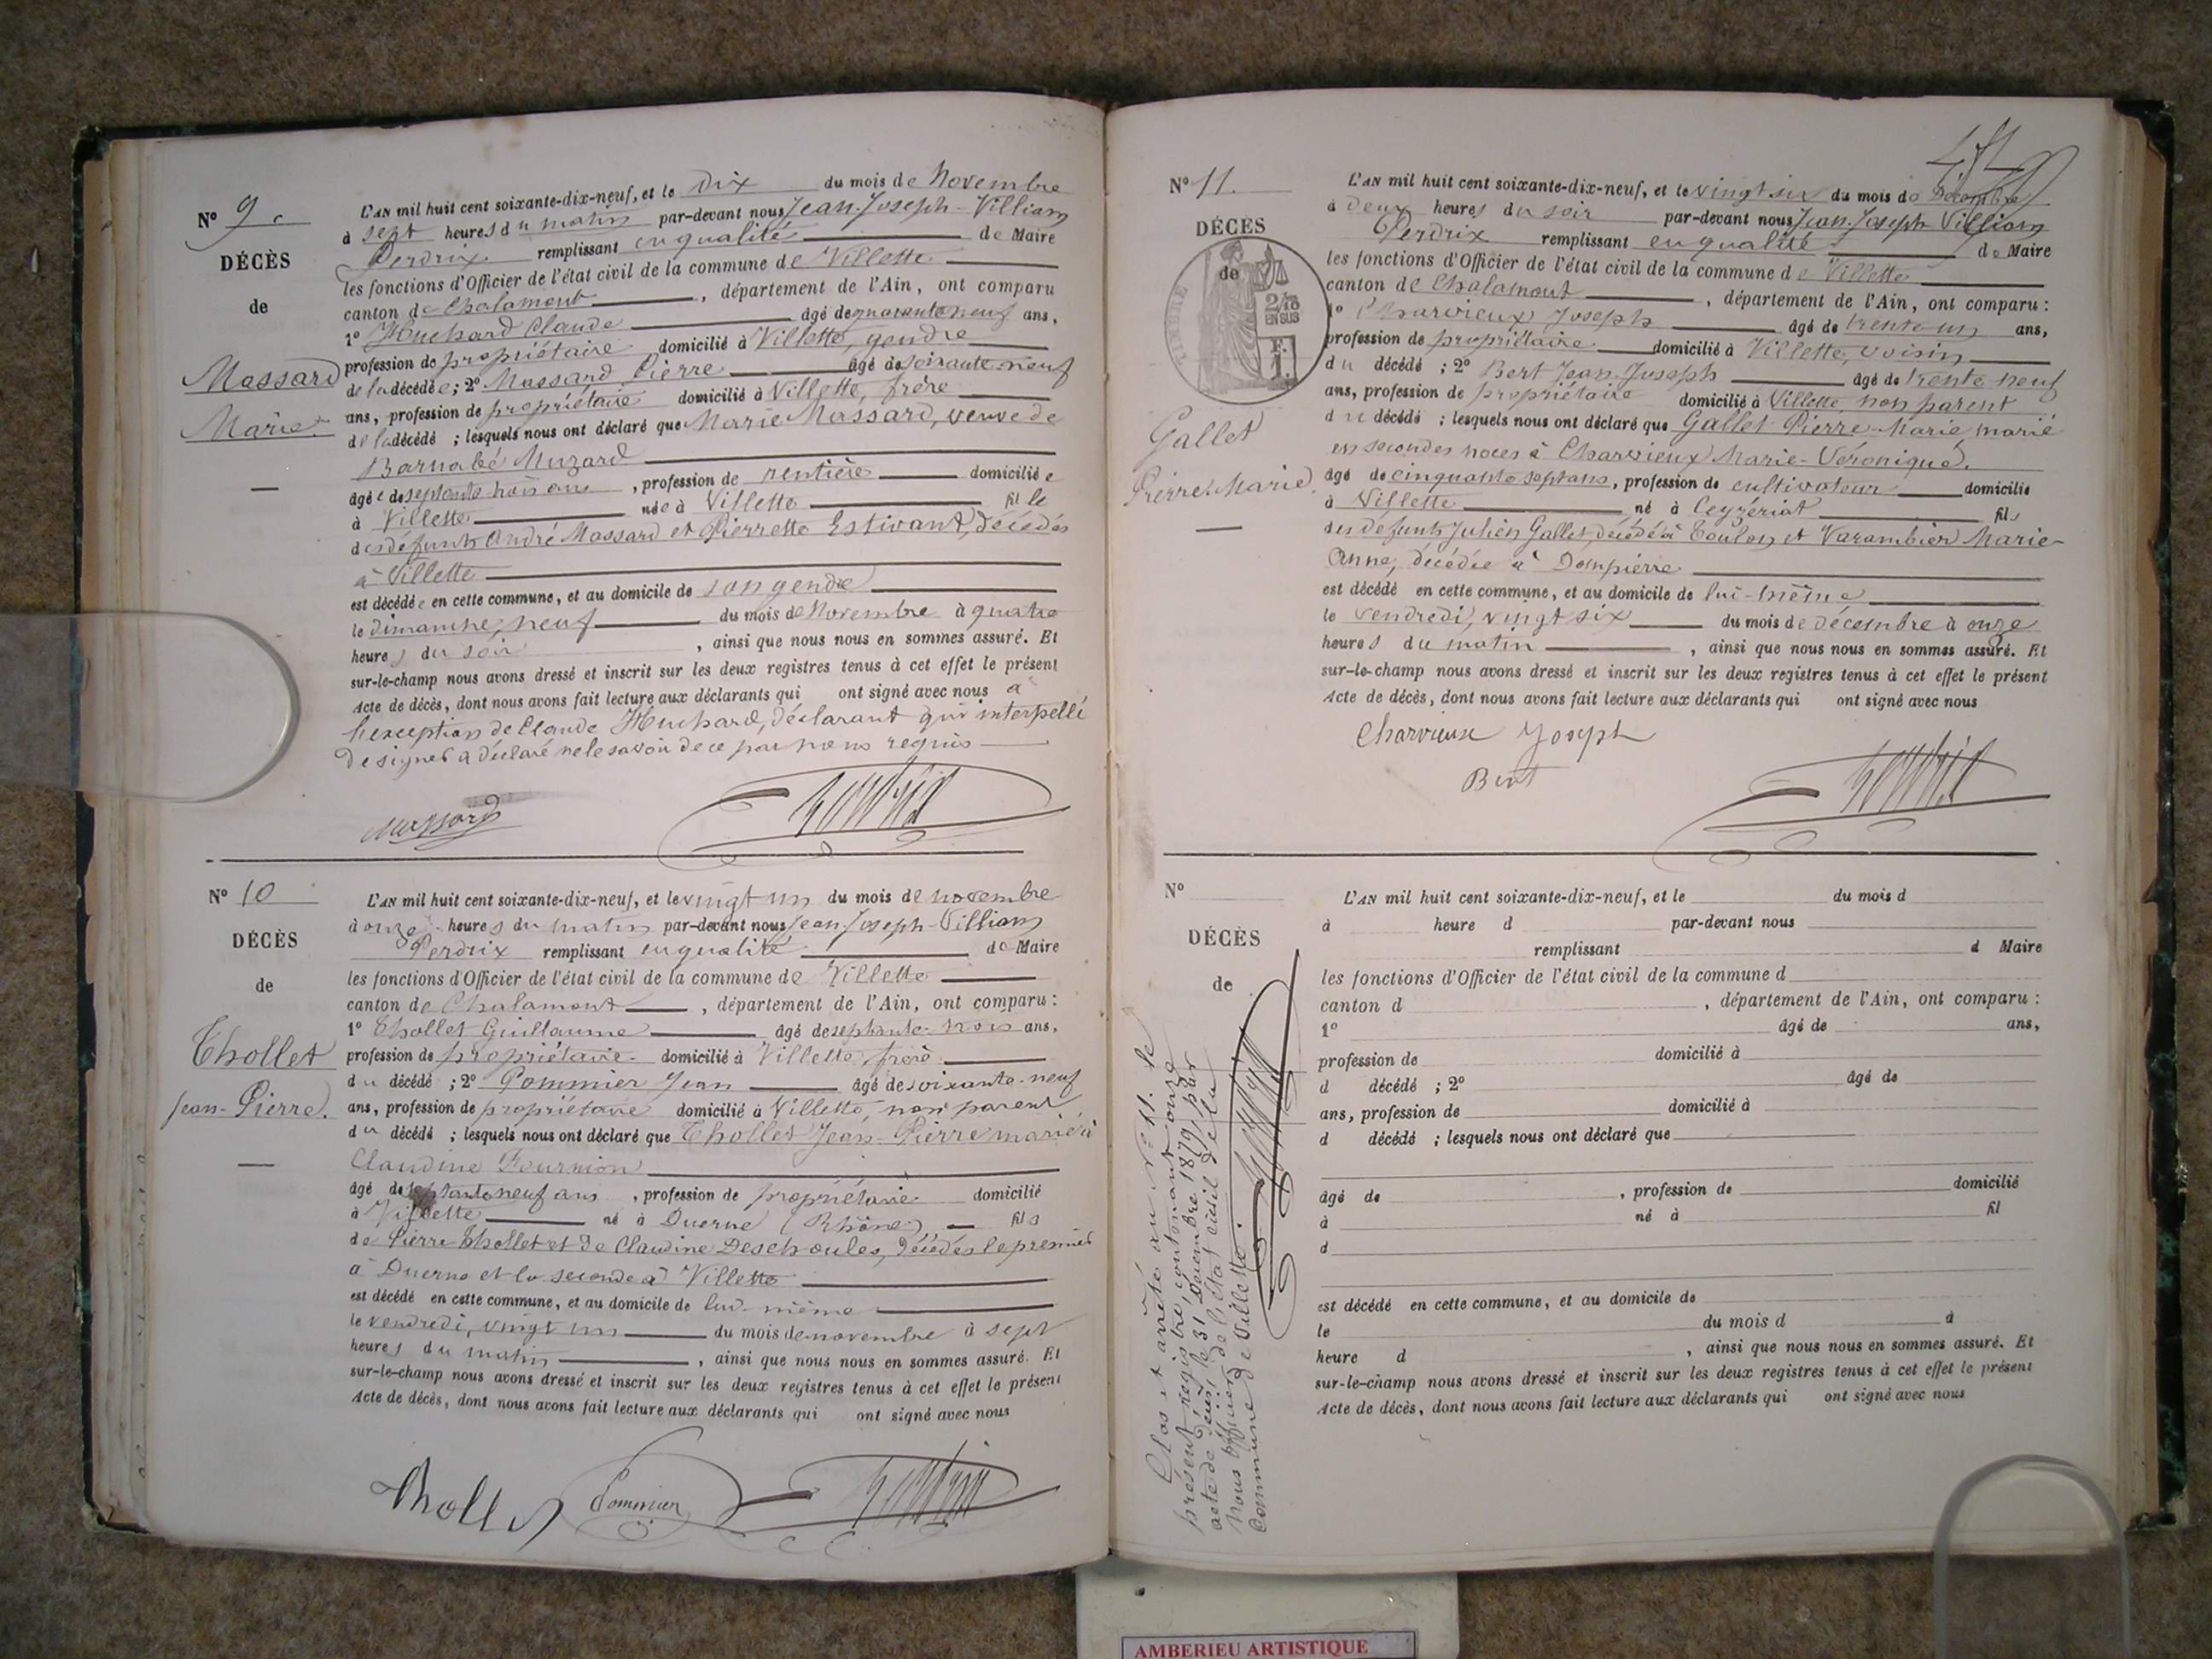 Nº 9.
DÉCÈS
de
Massard
Marie.
L'AN mil huit cent soixante-dix-neuf, et le Dix du mois de Novembre
à sept heures du matin par-devant nous Jean-Joseph-Villiam
Perdrix remplissant en qualité de Maire
les fonctions d'Officier de l'état civil de la commune de Villette
canton de Chalamont, département de l'Ain, ont comparu
1º Huchard Claude âgé de quarante neuf ans,
profession de propriétaire domicilié à Villette, gendre
de la décédée; 2º Massard Pierre âgé de soixante neuf
ans, profession de propriétaire domicilié à Villette, frère
de la décédé ; lesquels nous ont déclaré que Marie Massard, veuve de
Barnabé Muzard
âgée de septante trois ans, profession de rentière domiciliée
à Villette née à Villette fille
des défunts André Massard et Pierrette Estivant, décédés
à Villette
est décédée en cette commune, et au domicile de son gendre
le dimanche, neuf du mois de Novembre à quatre
heures du soir, ainsi que nous nous en sommes assuré. Et
sur-le-champ nous avons dressé et inscrit sur les deux registres tenus à cet effet le présent
Acte de décès, dont nous avons fait lecture aux déclarants qui ont signé avec nous à
l'exception de Claude Huchard, déclarant qui interpellé
de signer a déclaré ne le savoir de ce par nous requis
Massard
Nº 10
DÉCÈS
de
Thollet
Jean-Pierre.
L'AN mil huit cent soixante-dix-neuf, et le vingt un du mois de novembre
à onze heures du matin par-devant nous Jean-Joseph-Villiam
Perdrix remplissant en qualité de Maire
les fonctions d'Officier de l'état civil de la commune de Villette
canton de Chalamont, département de l'Ain, ont comparu :
1º Thollet Guillaume âgé de septante-trois ans,
profession de propriétaire domicilié à Villette, frère
du décédé ; 2º Pommier Jean âgé de soixante-neuf
ans, profession de propriétaire domicilié à Villette, non parent
du décédé ; lesquels nous ont déclaré que Thollet Jean-Pierre marié à
Claudine
âgé de septante neuf ans, profession de propriétaire domicilié
à Villette né à Duerne (Rhône), fils
de Pierre Thollet et de Claudine Deschoules, décédés le premier
à Duerne et la seconde à Villette
est décédé en cette commune, et au domicile de lui-même
le vendredi, vingt un du mois de novembre à sept
heures du matin, ainsi que nous nous en sommes assuré. Et
sur-le-champ nous avons dressé et inscrit sur les deux registres tenus à cet effet le présent
Acte de décès, dont nous avons fait lecture aux déclarants qui ont signé avec nous
Thollet Pommier
Nº 11.
DÉCÈS
de
2/10
EN SUS
F.
1.
Gallet
Pierre-Marie
L'AN mil huit cent soixante-dix-neuf, et le vingt six du mois de Décembre
à Deux heures du soir par-devant nous Jean-Joseph Villiam
Perdrix remplissant en qualité de Maire
les fonctions d'Officier de l'état civil de la commune de Villette
canton de Chalamont, département de l'Ain, ont comparu :
1º Charvieux Joseph âgé de trente-un ans,
profession de propriétaire domicilié à Villette, voisin
du décédé ; 2º Bert Jean-Joseph âgé de trente-neuf
ans, profession de propriétaire domicilié à Villette, non parent
du décédé ; lesquels nous ont déclaré que Gallet Pierre-Marie, marié
en secondes noces à Charvieux Marie-Véronique,
âgé de cinquante sept ans, profession de cultivateur domicilié
à Villette né à Ceyzériat fils
des défunts Julien Gallet, décédé à Toulon et Varambier Marie-
Anne, décédée à Dompierre
est décédé en cette commune, et au domicile de lui-même
le vendredi, vingt six du mois de décembre à onze
heures du matin, ainsi que nous nous en sommes assuré. Et
sur-le-champ nous avons dressé et inscrit sur les deux registres tenus à cet effet le présent
Acte de décès, dont nous avons fait lecture aux déclarants qui ont signé avec nous
Charvieux Joseph
Bert
Nº
DÉCÈS
de
L'AN mil huit cent soixante-dix-neuf, et le du mois d
à heure d par-devant nous
remplissant d Maire
les fonctions d'Officier de l'état civil de la commune d
canton d , département de l'Ain, ont comparu :
1º âgé de ans,
profession de domicilié à
d décédé ; 2º âgé de
ans, profession de domicilié à
d décédé ; lesquels nous ont déclaré que
âgé de , profession de domicilié
à né à fil
d
est décédé en cette commune, et au domicile de
le du mois d à
heure d , ainsi que nous nous en sommes assuré. Et
sur-le-champ nous avons dressé et inscrit sur les deux registres tenus à cet effet le présent
Acte de décès, dont nous avons fait lecture aux déclarants qui ont signé avec nous
Clos et arrêté au Nº 11. le
présent registre, contenant onze
acte de décès, le 31 Décembre 1879, par
nous officier de l'état civil de la
commune de Villette.
AMBERIEU ARTISTIQUE